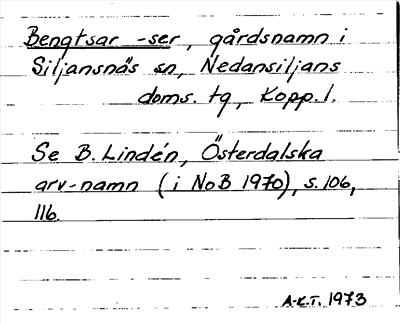 Bengtsar -ser, gårdsnamn i
Siljansnäs sn, Nedansiljans
doms. tg, Kopp. l.
Se B. Lindén, Österdalska
arv-namn (i NoB 1970), s. 106,
116.
A-L.T. 1973